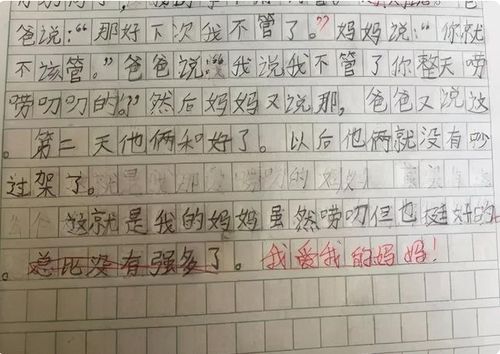 爸说：“那好下次我不管了。”妈妈说：“你就
不该管。”爸爸说：“我说我不管了你整天唠
唠叨叨的。”然后妈妈又说那，爸爸又说这
。第二天他俩和好了。以后他俩就没有吵
过架了。
这就是我的妈妈虽然唠叨但也挺好的
。总比没有强多了。我爱我的妈妈！